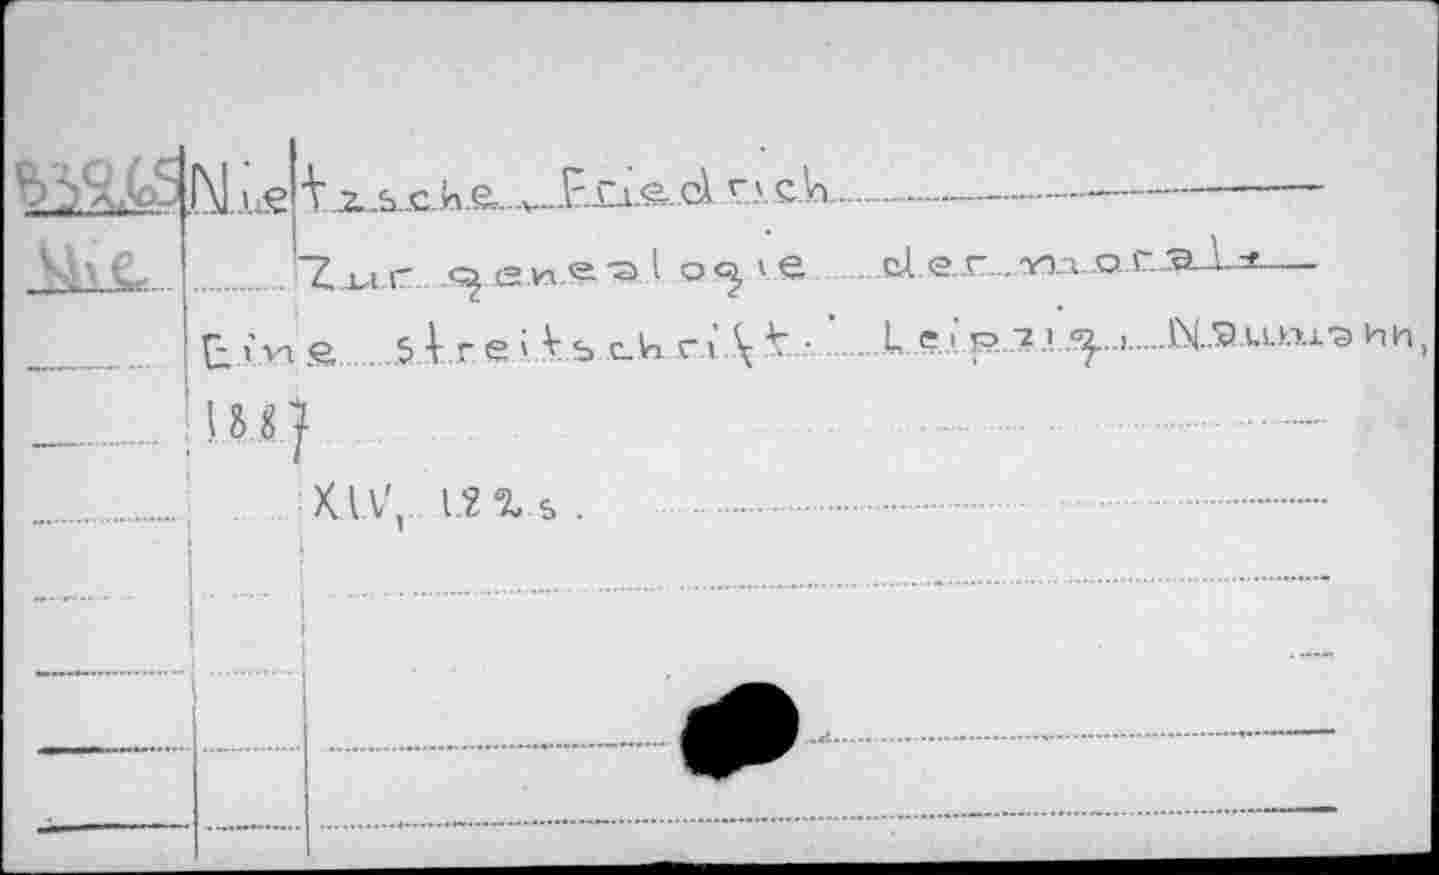 Nietzsche, Friedrich
Nie
Zur genealogie der moral.
Eine streitschrift. Leipzig, Naumann,
1887
XIV, 182 s.